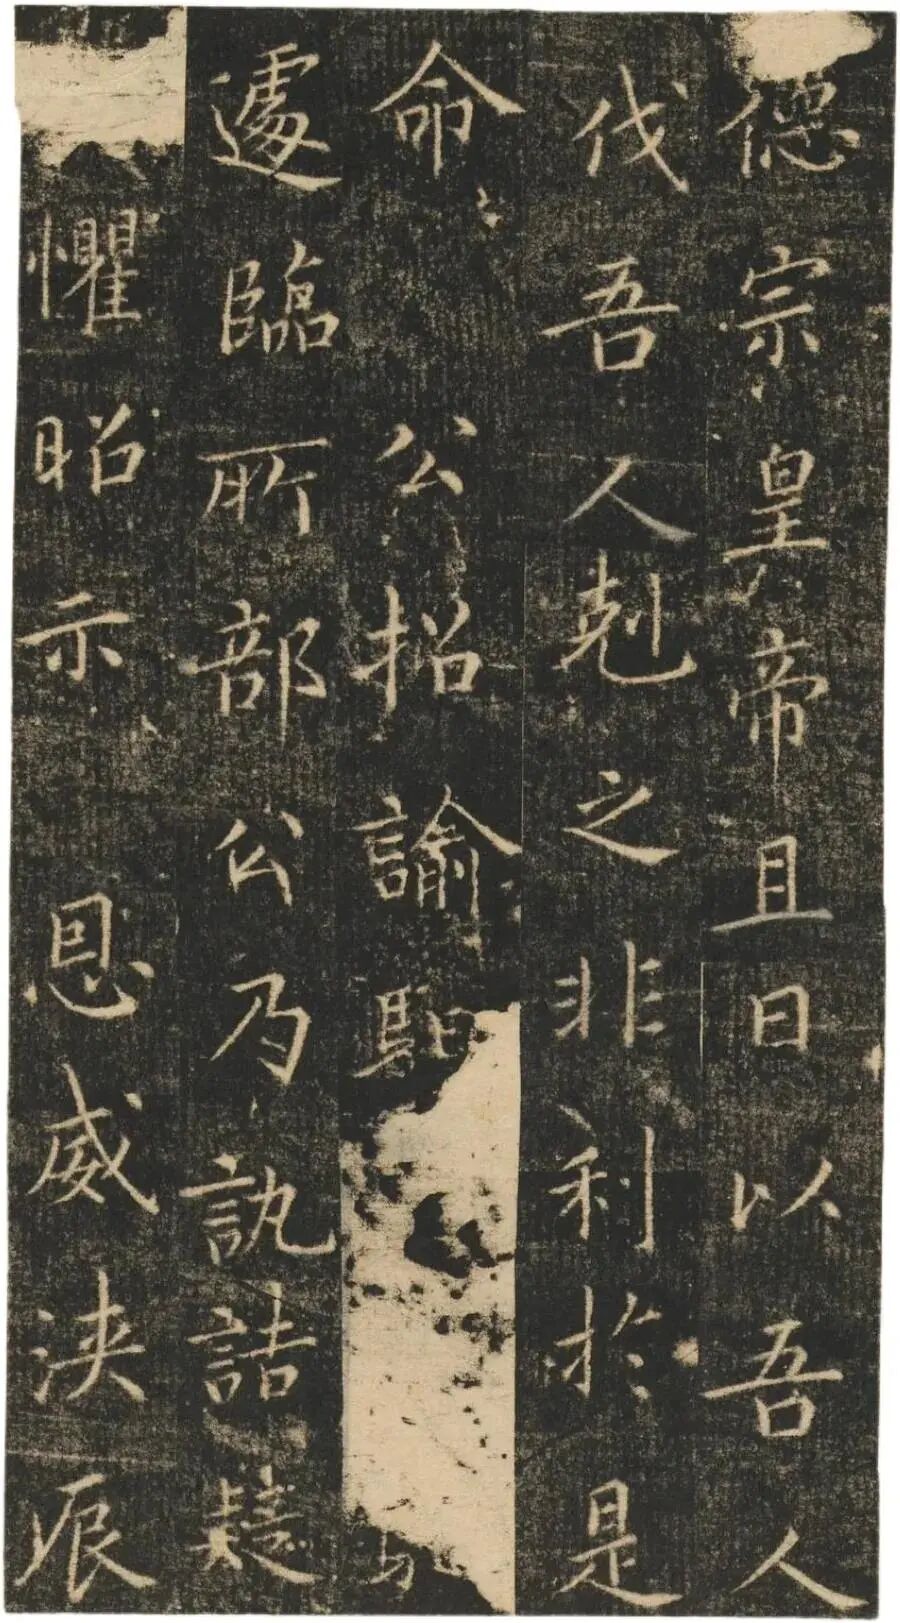 德宗皇帝且曰以吾人
伐吾人剋之非利於是
命公招諭
遽臨所部公乃訊詰疑
懼昭示恩威浹辰